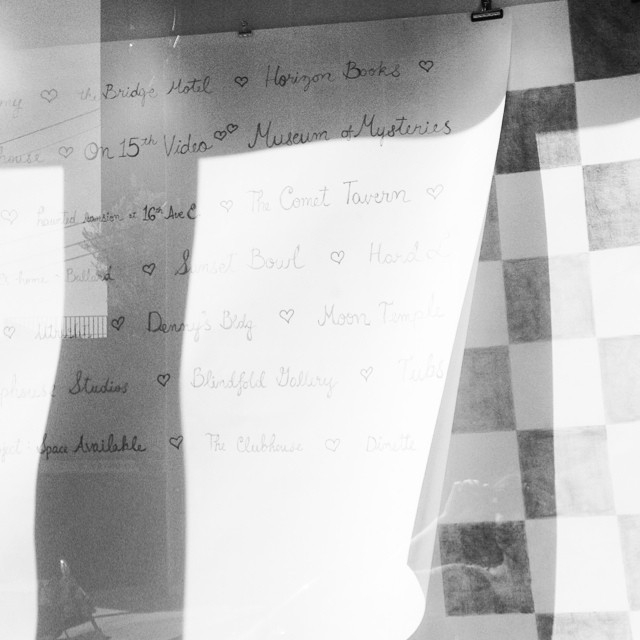 the Bridge Motel ♡ Horizon Books ♡
♡ On 15th Video ♡♡ Museum of Mysteries
♡ Haunted mansion at 16th Ave E ♡ The Comet Tavern ♡
♡ Sunset Bowl ♡
♡ ♡ Denny's Bldg ♡ Moon Temple
Studios ♡ Blindfold Gallery ♡ Tubs
Space Available ♡ The Clubhouse ♡ Dinette